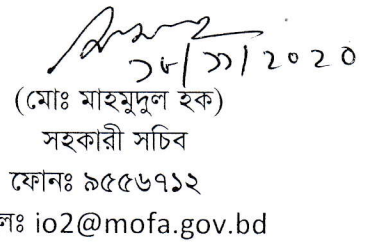 ১৮/১১/২০২০
(মোঃ মাহমুদুল হক)
সহকারী সচিব
ফোনঃ ৯৫৫৬৭১২
লঃ io2@mofa.gov.bd